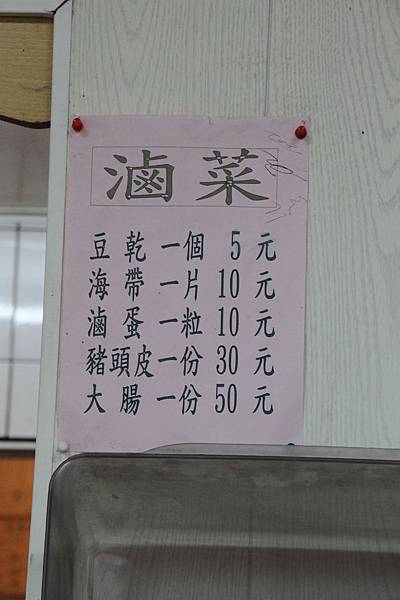 滷菜
豆乾一個 5元
海帶一片10元
滷蛋一粒10元
豬頭皮一份30元
大腸一份50元